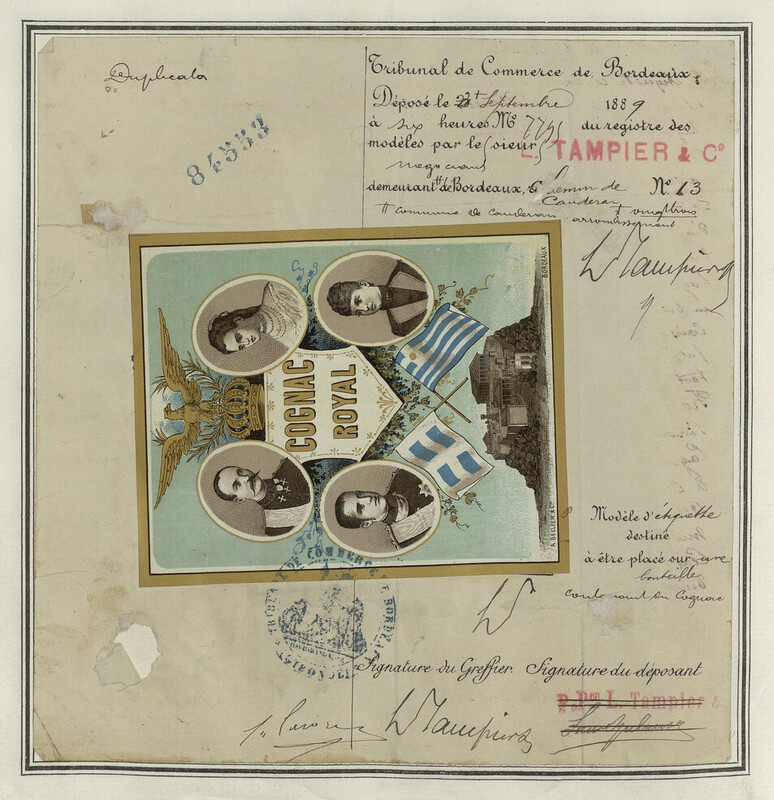 Duplicata
84553
Tribunal de Commerce de Bordeaux.
Déposé le Septembre 1889
à six heures, No 7791 du registre des
modèles par le sieur L. TAMPIER & Co
negociant
demeurant à Bordeaux, Chemin de No. 13
Cauderan
commune de Cauderan arrondissement
L Tampier
BORDEAUX
COGNAC
ROYAL
Modèle d'étiquette
destiné
à être placé sur une
bouteille
contenant du Cognac
TRIBUNAL DE COMMERCE DE BORDEAUX
Signature du Greffier. Signature du déposant
L. Tampier &
L Tampier